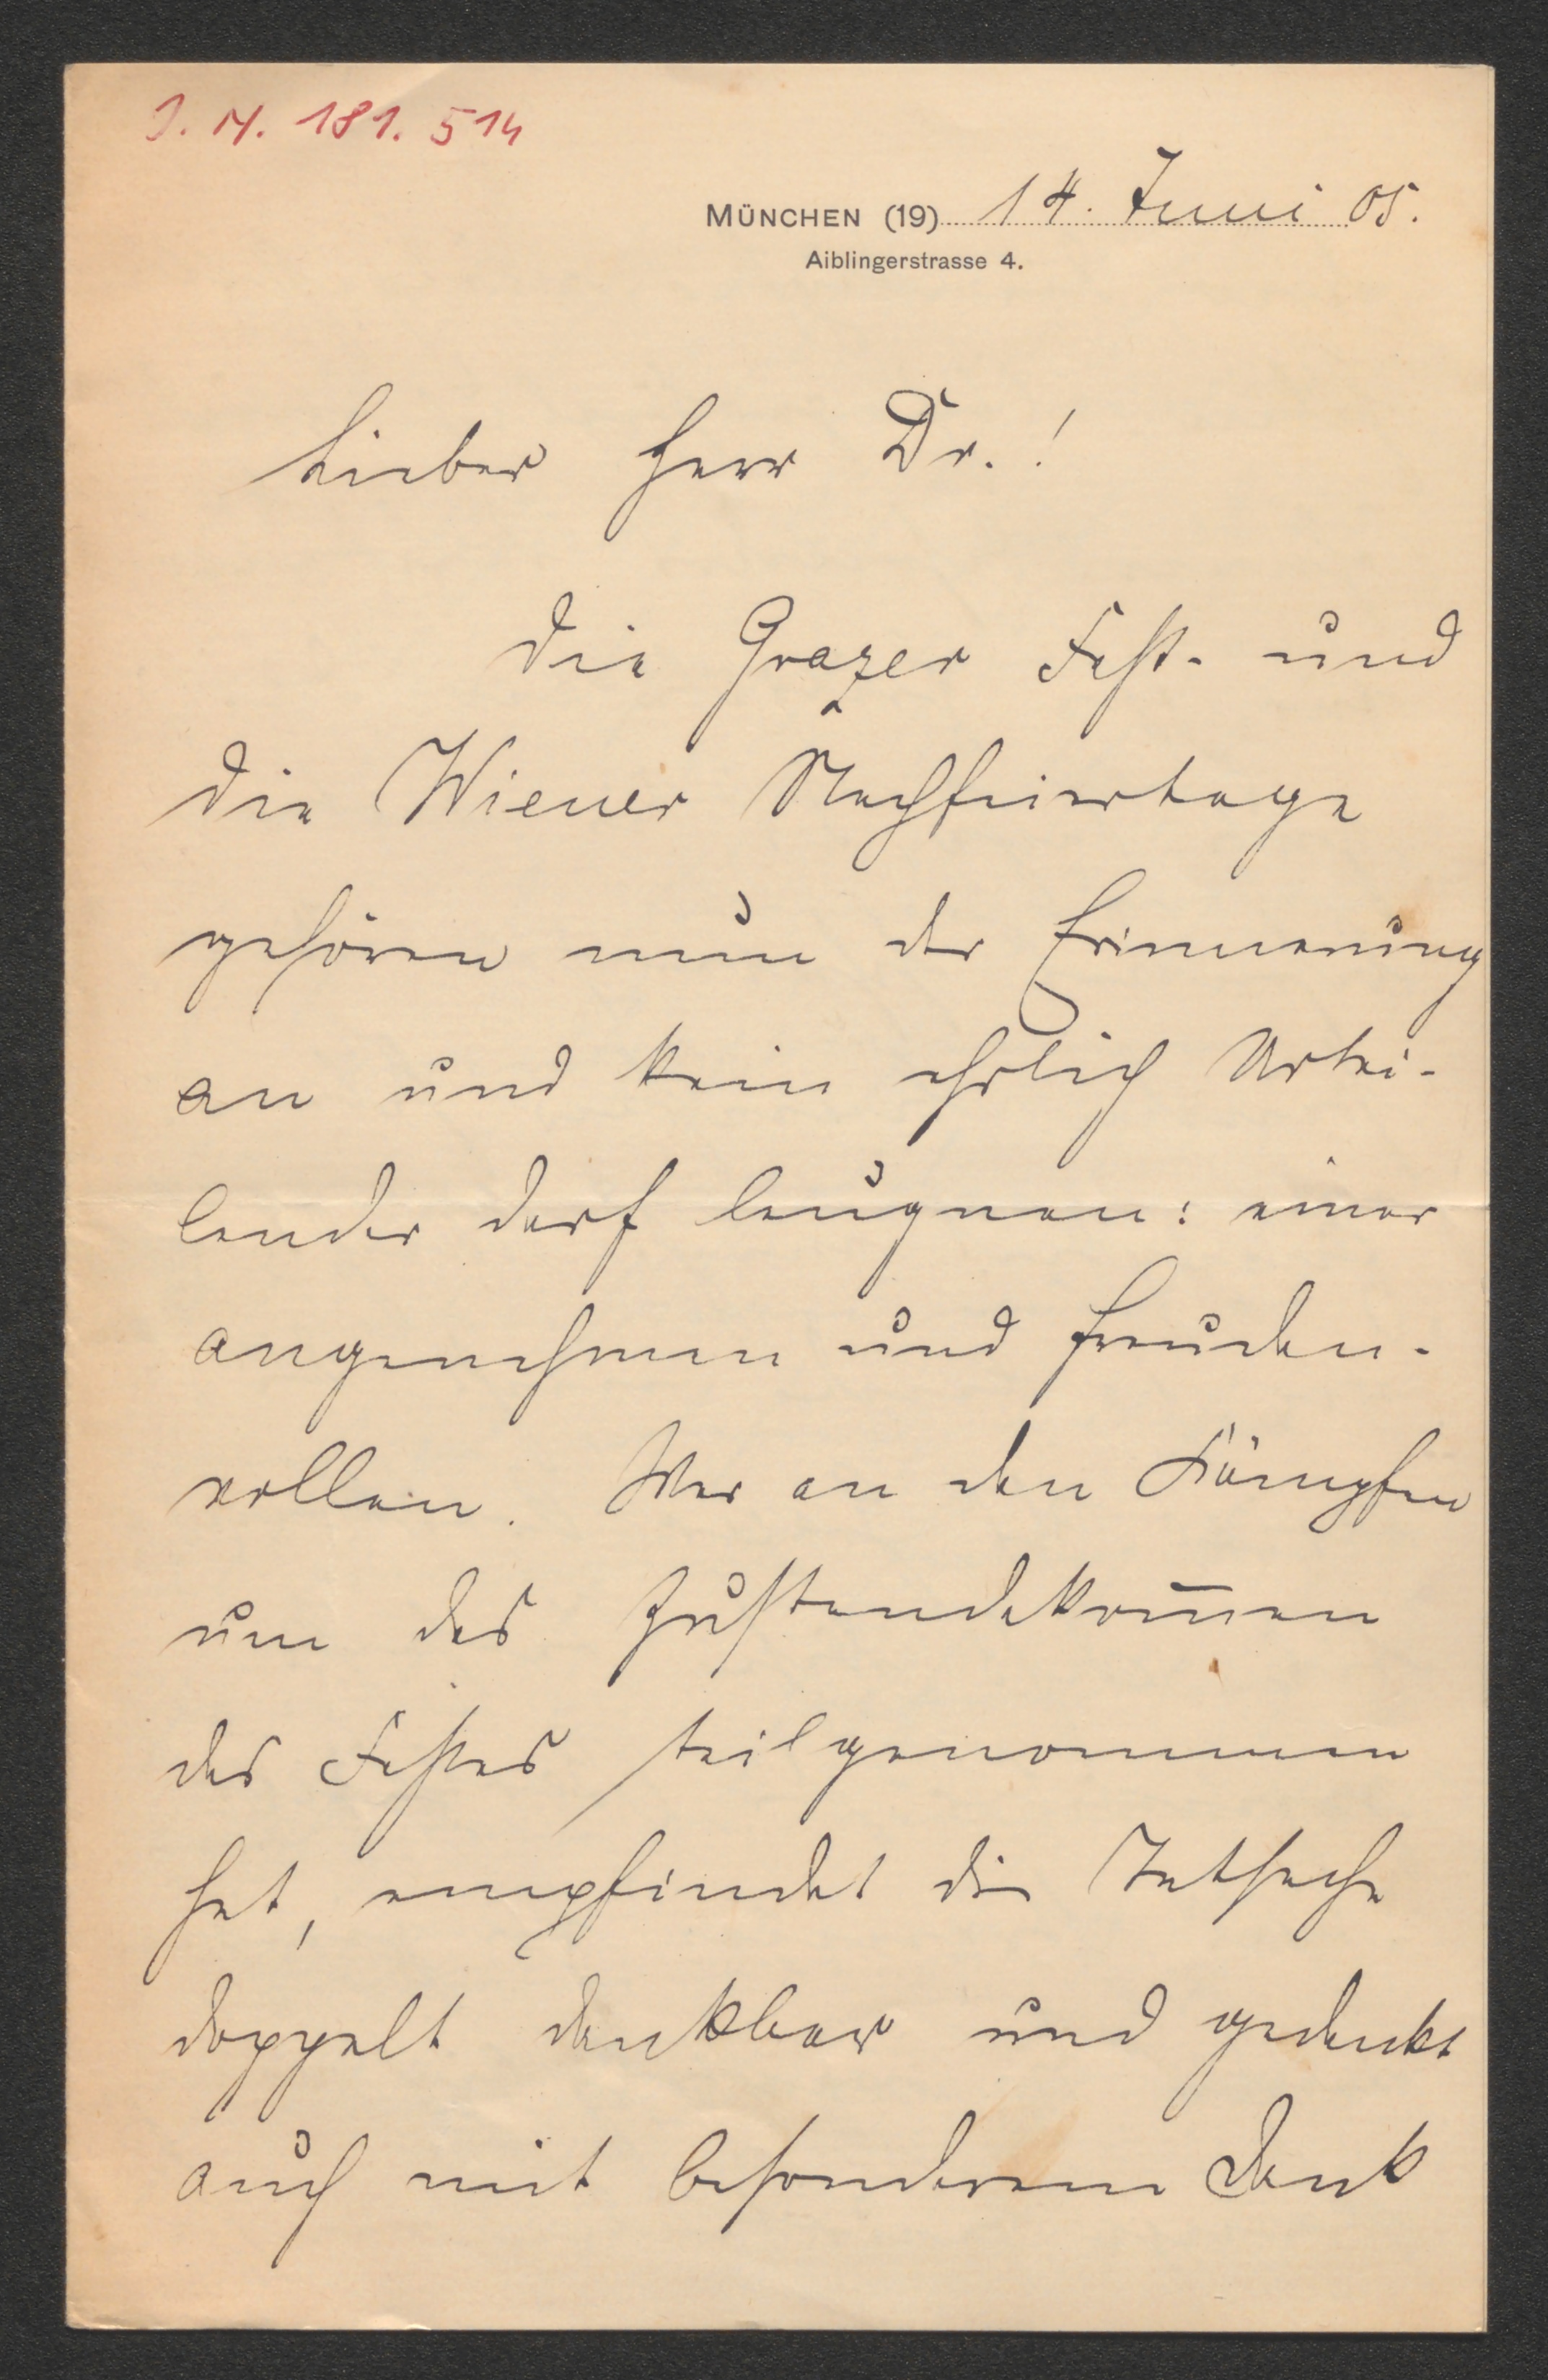 J. N. 181. 514
MÜNCHEN (19) 14. Juni 05.
Aiblingerstrasse 4.
Lieber Herr Dr.!
Die Grazer Fest- und
die Wiener Nachfeiertage
gehören nun der Erinnerung
an und kein ehrlich Urtei-
lender darf leugnen: einer
angenehmen und freuden-
vollen. Wer an den Kämpfen
um das Zustandekom̅en
des Festes teilgenommen
hat, empfindet die Tatsache
doppelt dankbar und gedenkt
auch mit besonderem Dank